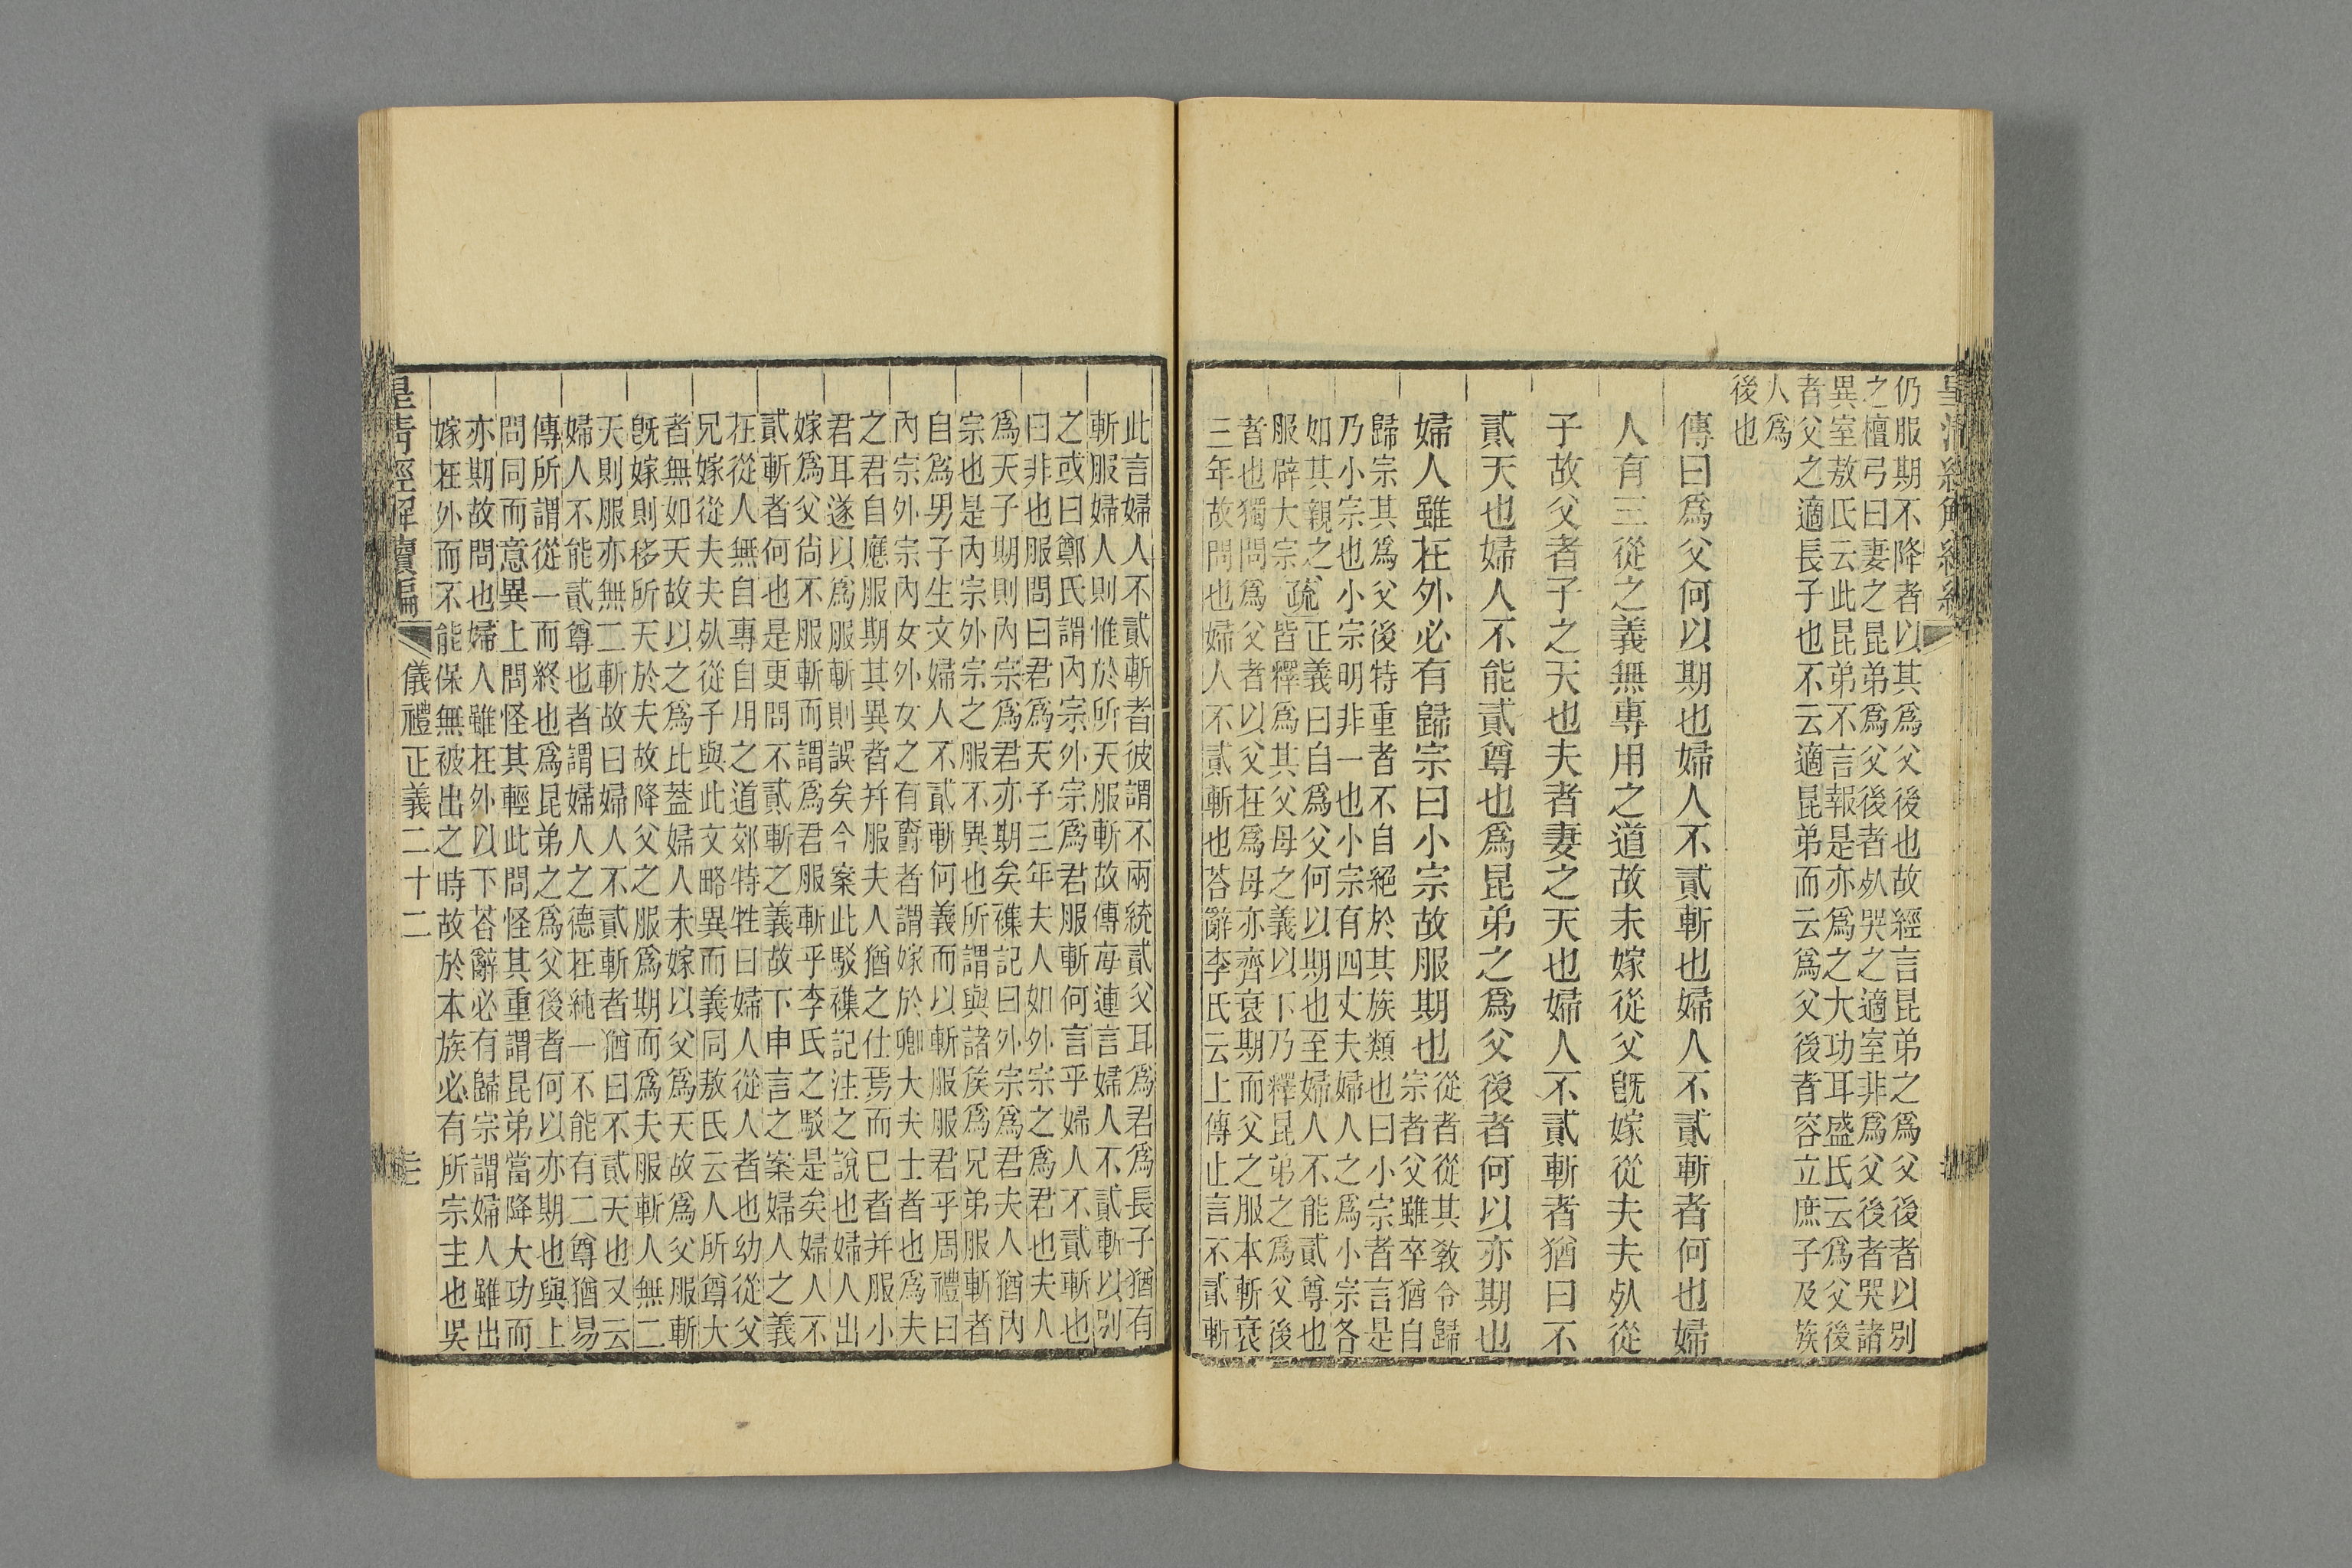 仍服期不降者以其爲父後也故經言昆弟之爲父後者以別
之檀弓曰妻之昆弟爲父後者死哭之適室非爲父後者哭諸
異室敖氏云此昆弟不言報是亦爲之大功耳盛氏云爲父後
者父之適長子也不云適昆弟而云爲父後者容立庶子及族
人爲
後也
傳曰爲父何以期也婦人不貳斬也婦人不貳斬者何也婦
人有三從之義無專用之道故未嫁從父旣嫁從夫夫死從
子故父者子之天也夫者妻之天也婦人不貳斬者猶曰不
貳天也婦人不能貳尊也爲昆弟之爲父後者何以亦期也
婦人雖在外必有歸宗曰小宗故服期也
從者從其敎令歸
宗者父雖卒猶自
歸宗其爲父後特重者不自絕於其族類也曰小宗者言是
乃小宗也小宗明非一也小宗有四丈夫婦人之爲小宗各
如其親之
服辟大宗
疏
正義曰自爲父何以期也至婦人不能貳尊也
皆釋爲其父母之義以下乃釋昆弟之爲父後
者也獨問爲父者以父在爲母亦齊衰期而父之服本斬衰
三年故問也婦人不貳斬也荅辭李氏云上傳止言不貳斬
此言婦人不貳斬者彼謂不兩統貳父耳爲君爲長子猶有
斬服婦人則惟於所天服斬故傳每連言婦人不貳斬以別
之或曰鄭氏謂內宗外宗爲君服斬何言乎婦人不貳斬也
曰非也服問曰君爲天子三年夫人如外宗之爲君也夫人
爲天子期則內宗爲君亦期矣襍記曰外宗爲君夫人猶內
宗也是內宗外宗之服不異也所謂與諸侯爲兄弟服斬者
自爲男子生文婦人不貳斬何義而以斬服服君乎周禮曰
內宗外宗內女外女之有爵者謂嫁於卿大夫士者也爲夫
之君自應服期其異者幷服夫人猶之仕焉而已者幷服小
君耳遂以爲服斬則誤矣今案此駁襍記注之說也婦人出
嫁爲父尙不服斬而謂爲君服斬乎李氏之駁是矣婦人不
貳斬者何也是更問不貳斬之義故下申言之案婦人之義
在從人無自專自用之道郊特牲曰婦人從人者也幼從父
兄嫁從夫夫死從子與此文略異而義同敖氏云人所尊大
者無如天故以之爲此葢婦人未嫁以父爲天故爲父服斬
旣嫁則移所天於夫故降父之服爲期而爲夫服斬人無二
天則服亦無二斬故曰婦人不貳斬者猶曰不貳天也又云
婦人不能貳尊也者謂婦人之德在純一不能有二尊猶易
傳所謂從一而終也爲昆弟之爲父後者何以亦期也與上
問同而意異上問怪其輕此問怪其重謂昆弟當降大功而
亦期故問也婦人雖在外以下荅辭必有歸宗謂婦人雖出
嫁在外而不能保無被出之時故於本族必有所宗主也吳
皇清經解續編
儀禮正義二十二